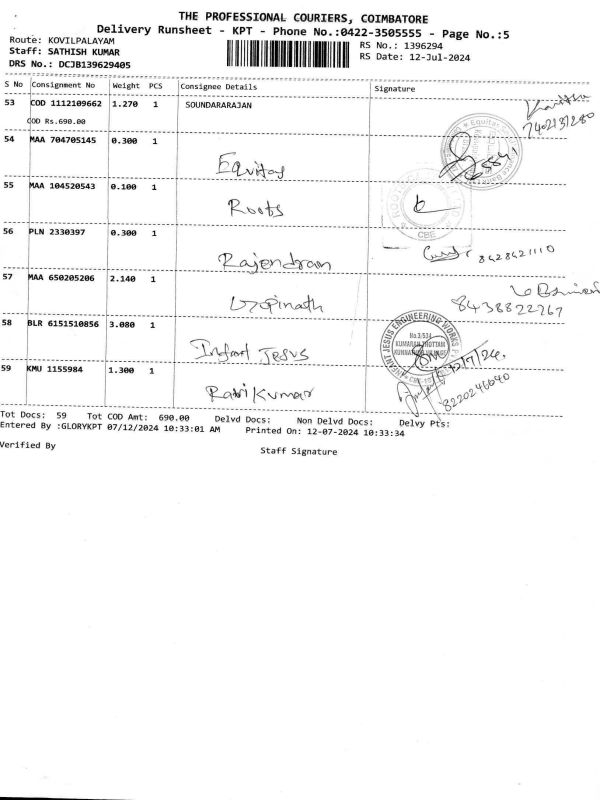 THE PROFESSIONAL COURIERS, COIMBATORE
Delivery Runsheet - KPT - Phone No.:0422-3505555 - Page No.:5
Route: KOVILPALAYAM
RS No.: 1396294
Staff: SATHISH KUMAR
RS Date: 12-Jul-2024
DRS No.: DCJB139629405
S No Consignment No Weight PCS Consignee Details Signature
53 COD 1112109662 1.270 1 SOUNDARARAJAN
COD Rs.690.00
7402131280
54 MAA 704705145 0.300 1
Equitas
55 MAA 104520543 0.100 1
Roots
CBE
56 PLN 2330397 0.300 1
Rajendran 8428421110
57 MAA 650205206 2.140 1
Gopinath 8438822267
58 BLR 6151510856 3.080 1
Infant Jesus
INFANT JESUS ENGINEERING WORKS
No.3/534
KUMARAN THOTTAM
59 KMU 1155984 1.300 1
Ravikumar 8220246640
Tot Docs: 59 Tot COD Amt: 690.00 Delvd Docs: Non Delvd Docs: Delvy Pts:
Entered By :GLORYKPT 07/12/2024 10:33:01 AM Printed On: 12-07-2024 10:33:34
Verified By
Staff Signature